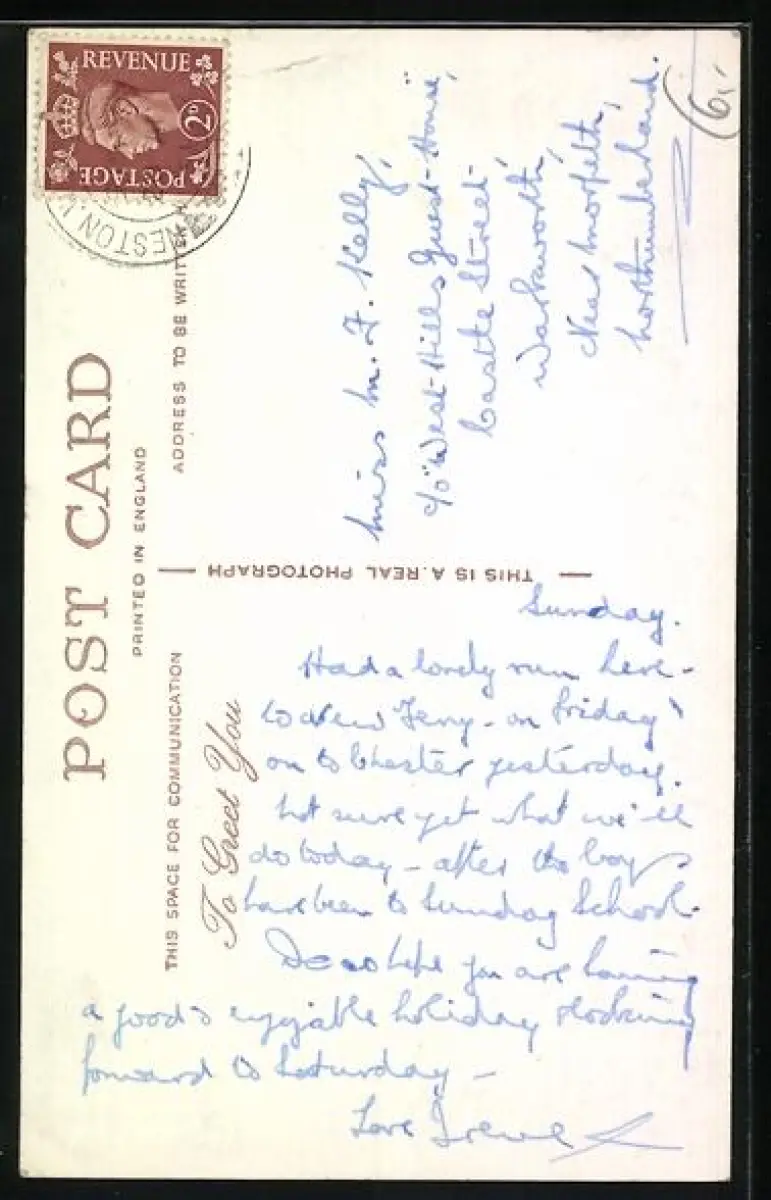 REVENUE
2D
POSTAGE
NESTON.
POST CARD
PRINTED IN ENGLAND
ADDRESS TO BE WRITTEN
THIS SPACE FOR COMMUNICATION
THIS IS A REAL PHOTOGRAPH
(6,
Miss M. F. Kelly,
c/o "West-Hills Guest-House",
Castle Street,
Warkworth,
Near Morpeth,
Northumberland.
To Greet You
Sunday.
Had a lovely run here -
to New Ferry - on Friday
on to Chester yesterday.
Not sure yet what we'll
do today - after the boys
have been to Sunday School.
Do so hope you are having
a good & enjoyable holiday & looking
forward to Saturday -
Love Irene X